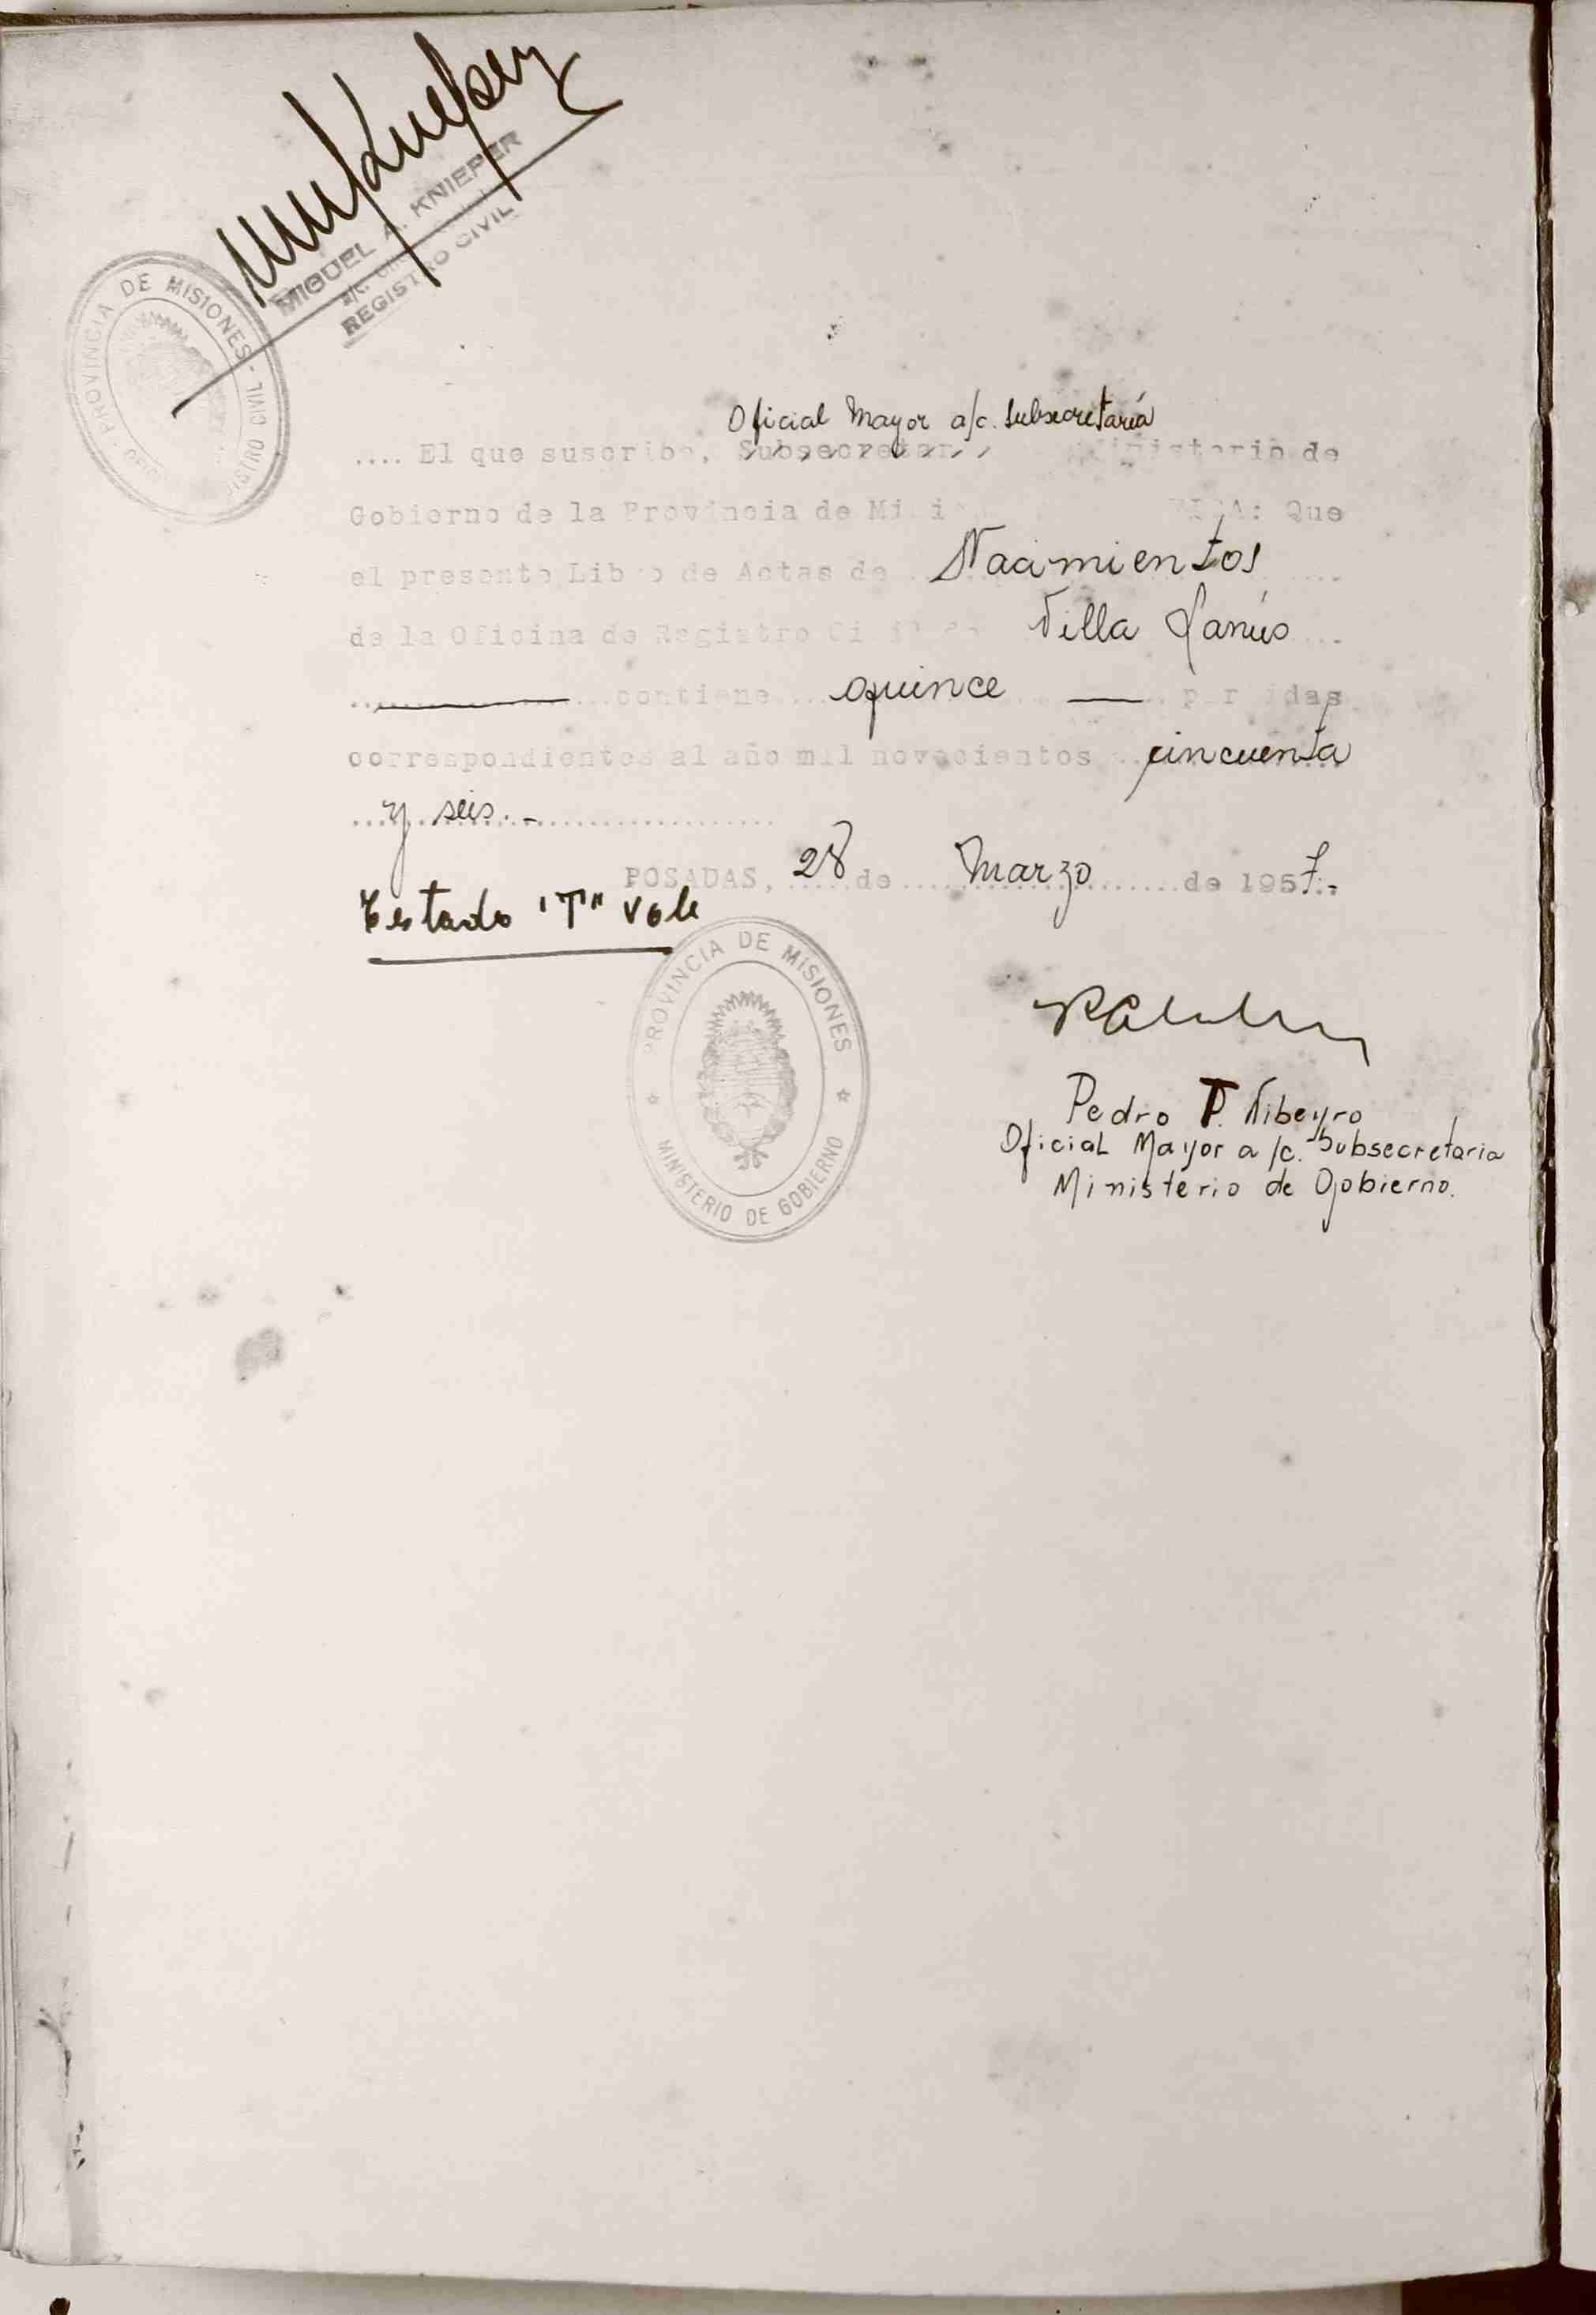 MIGUEL A. KNIEPER
REGISTRO CIVIL
PROVINCIA DE MISIONES - REGISTRO CIVIL
Oficial Mayor a/c. Subsecretaría
.... El que suscribe, Subsecretar Ministerio de
Gobierno de la Provincia de Mi i FICA: Que
el presente Libro de Actas de Nacimientos
de la Oficina de Registro Civil de Villa Lanús
contiene quince partidas
correspondientes al año mil novecientos cincuenta
y seis.-
POSADAS, 28 de Marzo de 1957.-
Testado "T" vale
PROVINCIA DE MISIONES
MINISTERIO DE GOBIERNO
Pedro T. Vibeyro
Oficial Mayor a/c. Subsecretaria
Ministerio de Gobierno.